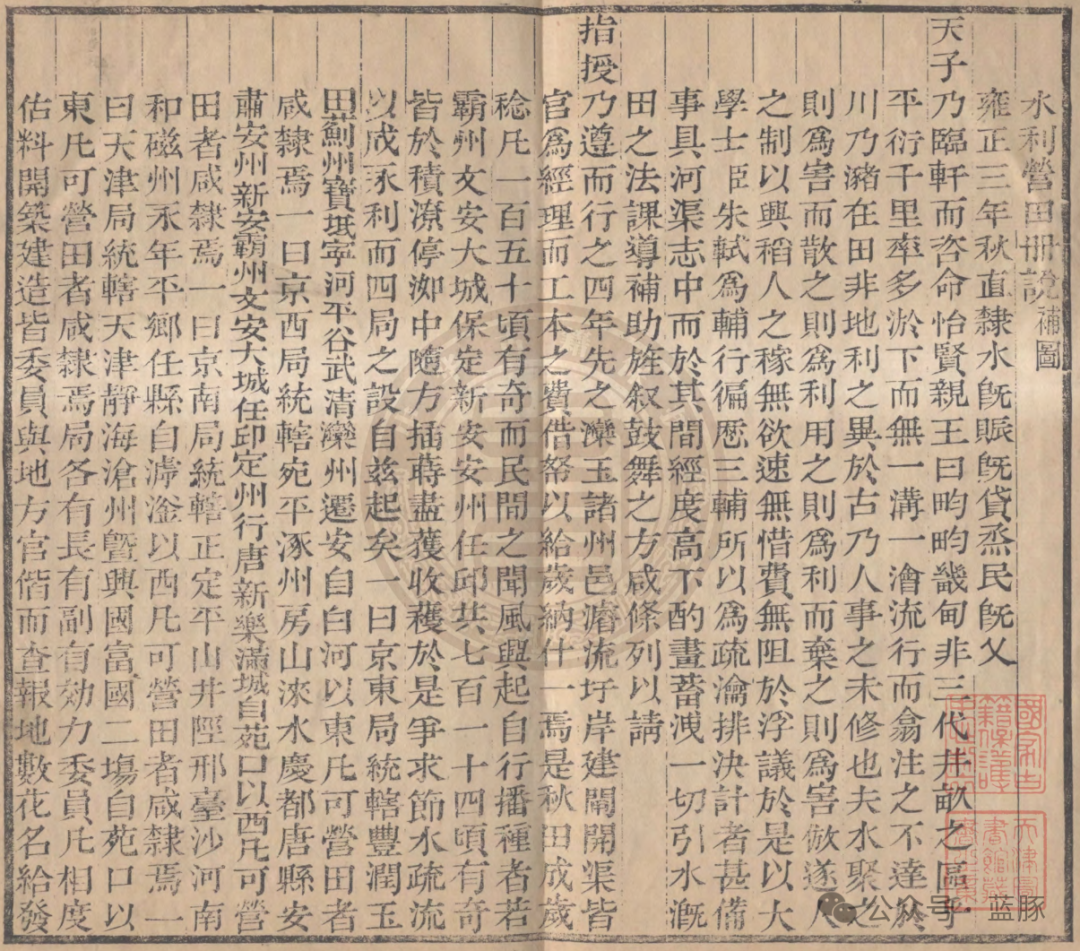 水利營田冊說補圖
雍正三年秋直隸水旣賑旣貸烝民旣乂
天子乃臨軒而咨命怡賢親王曰畇畇畿甸非三代井畝之區乎
平衍千里率多淤下而無一溝一澮流行而翕注之不達於
川乃瀦在田非地利之異於古乃人事之未修也夫水聚之
則爲害而散之則爲利用之則爲利而棄之則爲害倣遂人
之制以興稻人之稼無欲速無惜費無阻於浮議於是以大
學士臣朱軾爲輔行徧歷三輔所以爲疏瀹排決計者甚備
事具河渠志中而於其間經度高下酌畫蓄洩一切引水漑
田之法課導補助旌叙鼓舞之方咸條列以請
指授乃遵而行之四年先之灤玉諸州邑濬流圩岸建閘開渠皆
官爲經理而工本之費借帑以給歲納什一焉是秋田成歲
稔凡一百五十頃有奇而民間之聞風興起自行播種者若
霸州文安大城保定新安安州任邱共七百一十四頃有奇
皆於積潦停洳中隨方揷蒔盡獲收穫於是爭求節水疏流
以成永利而四局之設自兹起矣一曰京東局統轄豐潤玉
田薊州寶坻寧河平谷武清灤州遷安自白河以東凡可營田者
咸隸焉一曰京西局統轄宛平涿州房山淶水慶都唐縣安
肅安州新安霸州文安大城任邱定州行唐新樂滿城自苑口以西凡可營
田者咸隸焉一曰京南局統轄正定平山井陘邢臺沙河南
和磁州永年平鄉任縣自滹滏以西凡可營田者咸隸焉一
曰天津局統轄天津靜海滄州曁興國富國二塲自苑口以
東凡可營田者咸隸焉局各有長有副有効力委員凡相度
估料開築建造皆委員與地方官偕而查報地數花名給發
國家古籍保護
天津圖書館藏
公众号·蓝豚